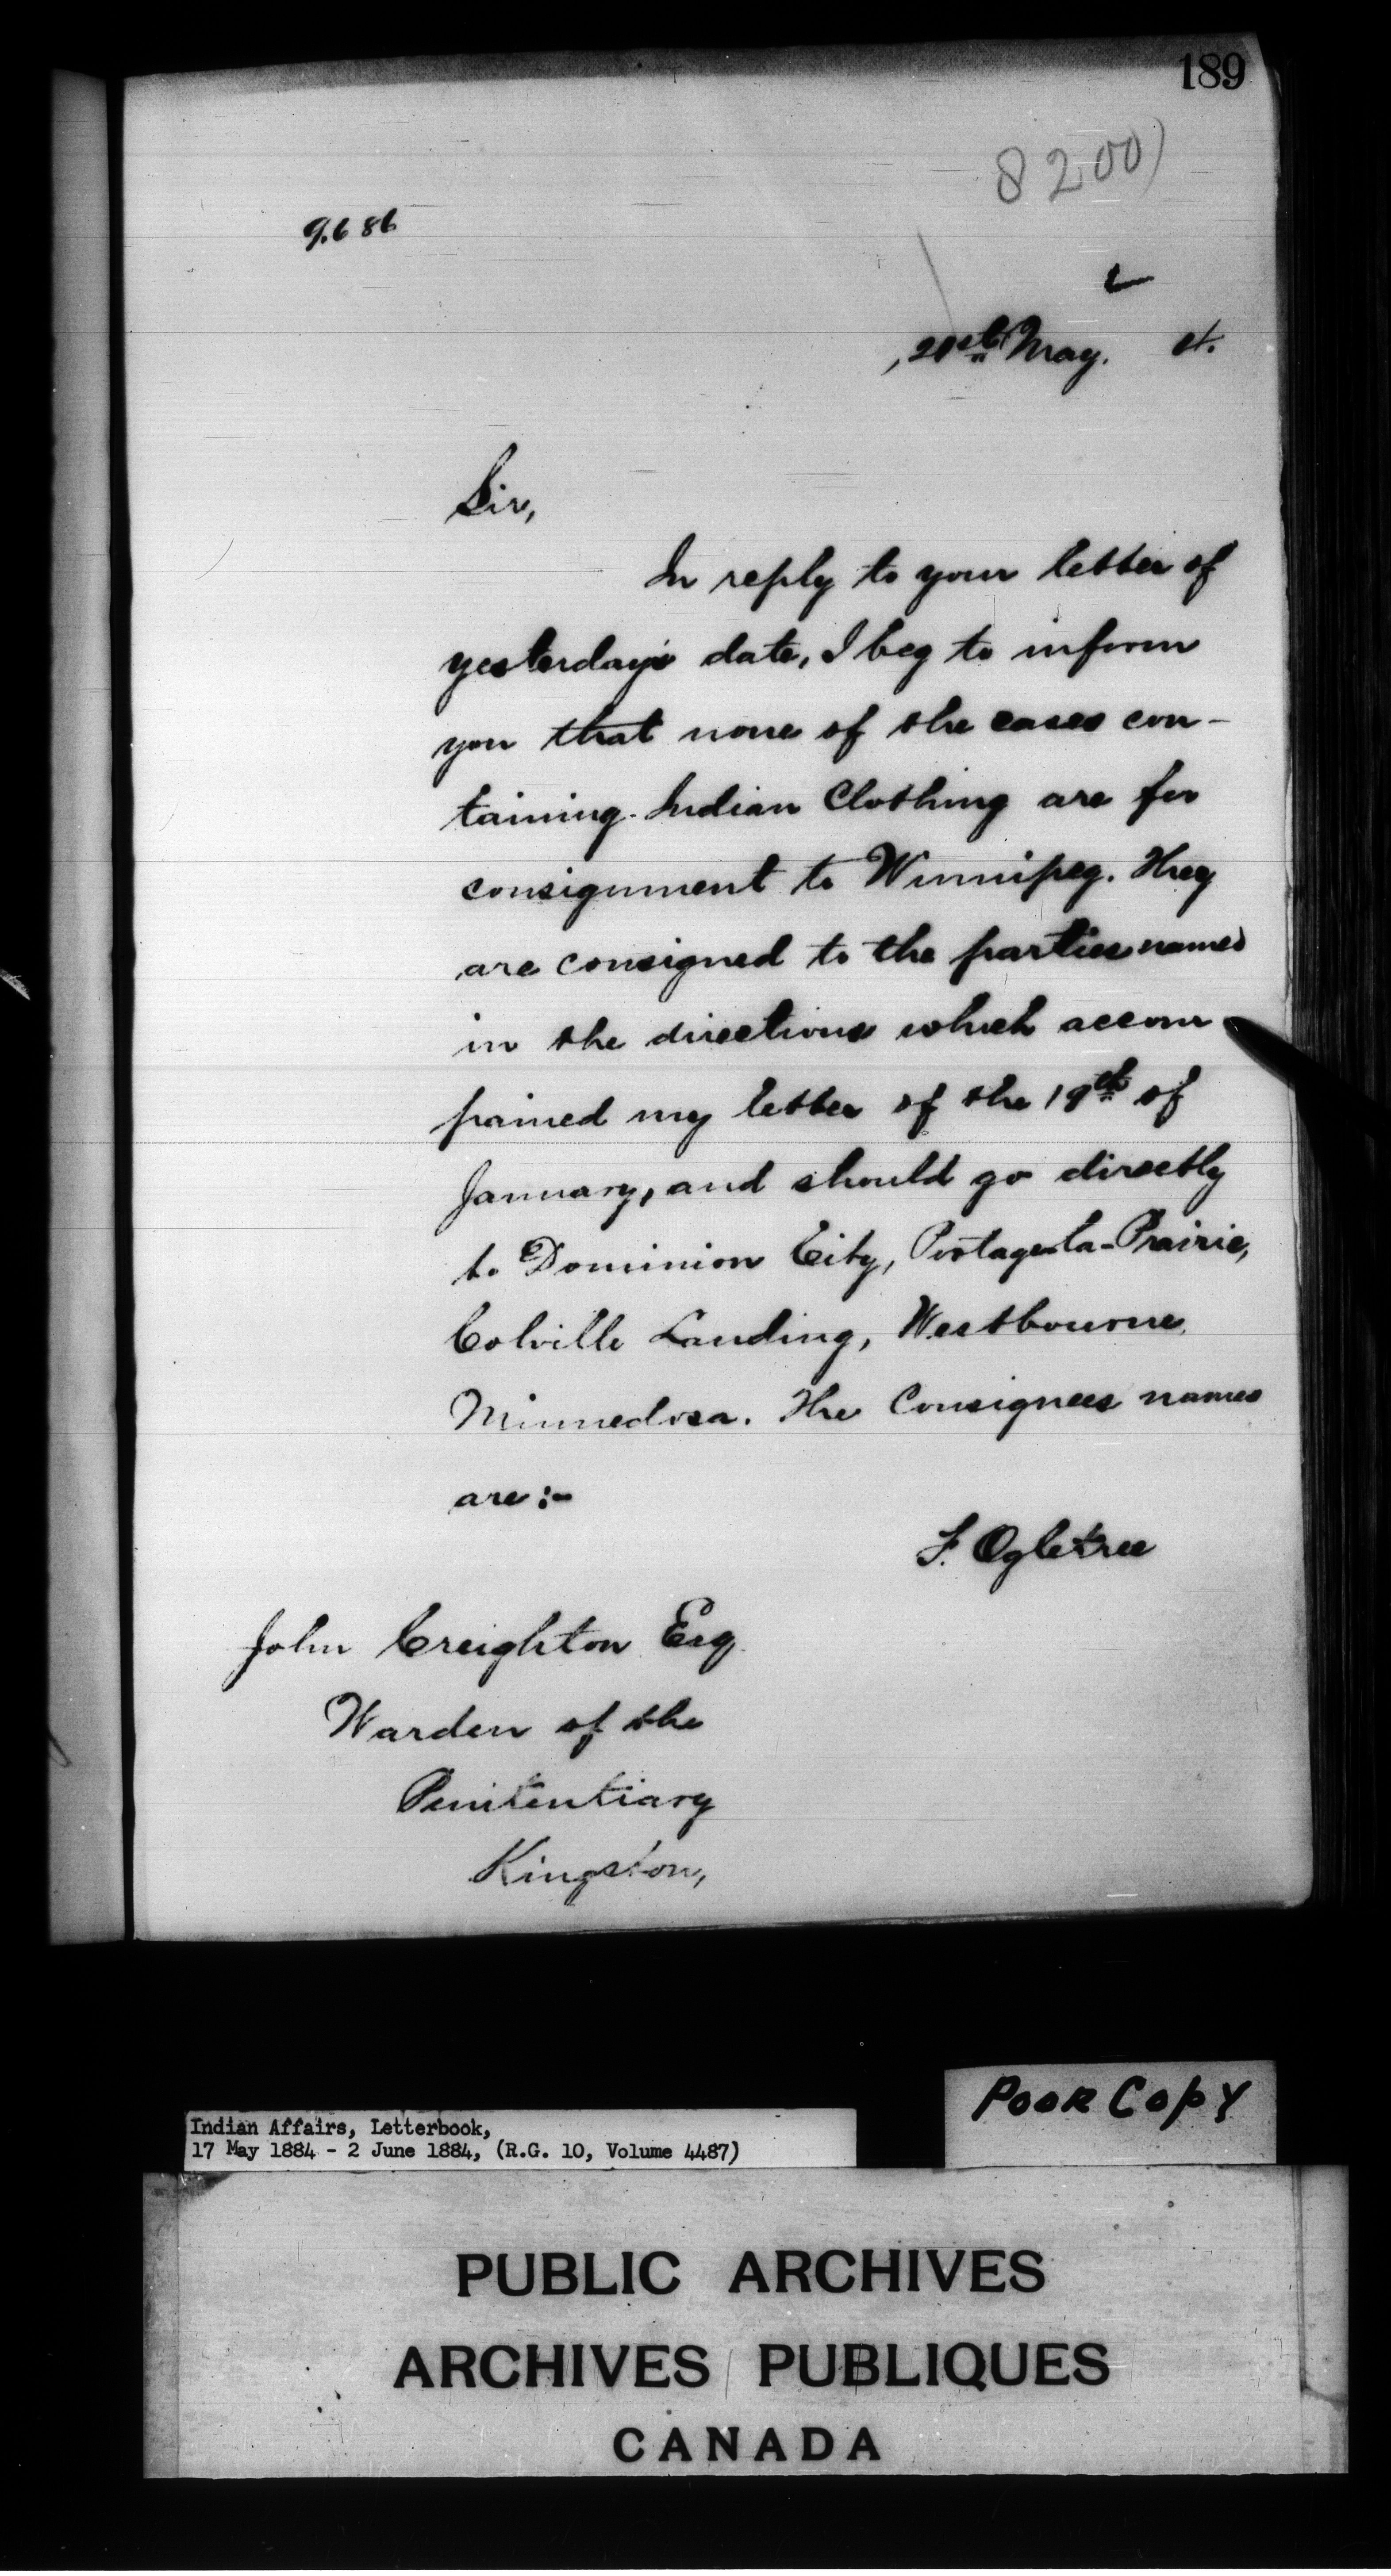 189
8200)
9.686
21st May. 4.
Sir,
In reply to your letter of
yesterday's date, I beg to inform
you that none of the cases con-
taining Indian Clothing are for
consignment to Winnipeg. They
are consigned to the parties named
in the directions which accom
panied my letter of the 19th of
January, and should go directly
to Dominion City, Portage-la-Prairie,
Colville Landing, Westbourne,
Minnedosa. The Consignees names
are:-
F. Ogletree
John Creighton Esq
Warden of the
Penitentiary
Kingston,
Poor Copy
Indian Affairs, Letterbook,
17 May 1884 - 2 June 1884, (R.G. 10, Volume 4487)
PUBLIC ARCHIVES
ARCHIVES PUBLIQUES
CANADA